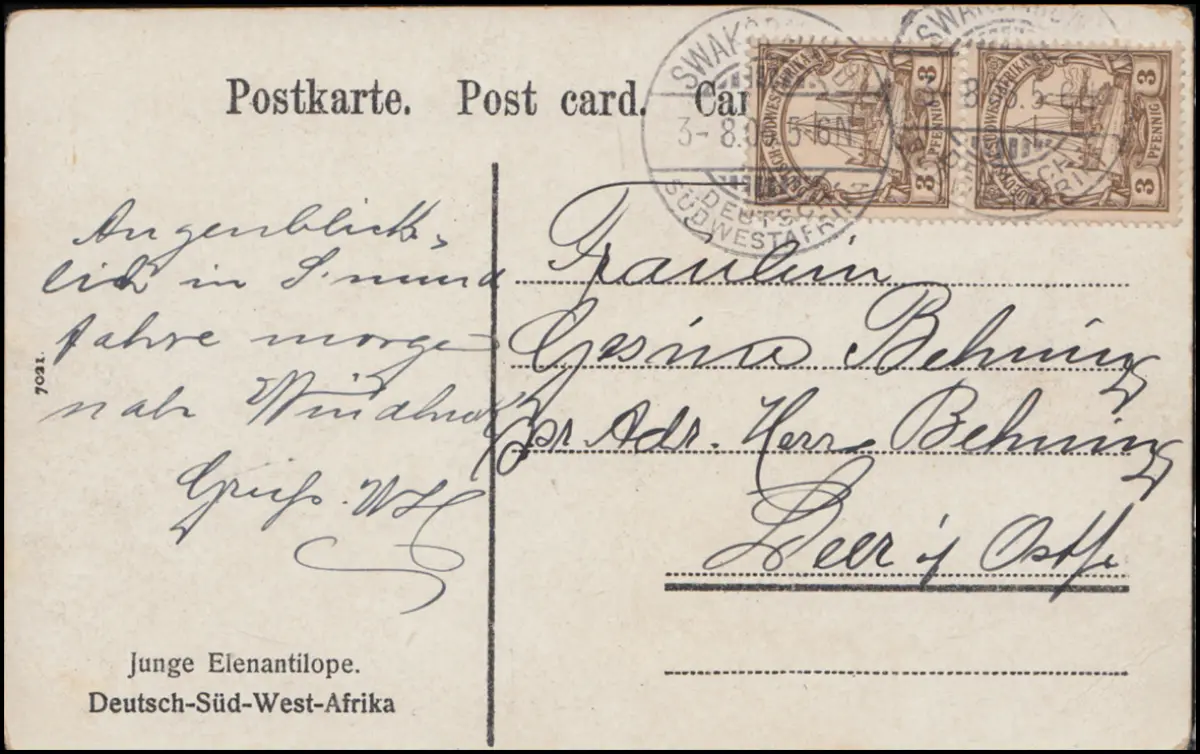 Postkarte. Post card.
SWAKOPMUND
3-8.0 5-6N
DEUTSCH-
SÜDWESTAFRIKA
DEUTSCH SÜDWESTAFRIKA
3 PFENNIG 3
DEUTSCH SÜDWESTAFRIKA
3 PFENNIG 3
Augenblick-
lich in S'mund
fahre morgen
nah Windhuk
Gruß. WH
7021.
Fräulein
Gesina Behning
pr. Adr. Herrn Behning
Leer i/ Ostfr.
Junge Elenantilope.
Deutsch-Süd-West-Afrika